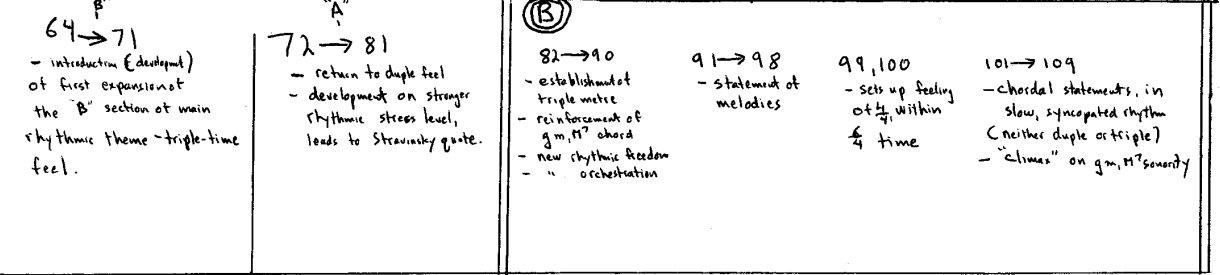 "B"
64→71
- introduction (& developmt)
of first expansion of
the "B" section of main
rhythmic theme - triple-time
feel.
"A"
72→81
- return to duple feel
- development on stronger
rhythmic stress level,
leads to Stravinsky quote.
B
82→90
- establishment of
triple metre
- reinforcement of
gm, M7 chord
- new rhythmic freedom
- " orchestration
91→98
- statement of
melodies
99,100
- sets up feeling
of 4/4, within
6/4 time
101→109
- chordal statements, in
slow, syncopated rhythm
(neither duple or triple)
- "climax" on gm, M7 sonority